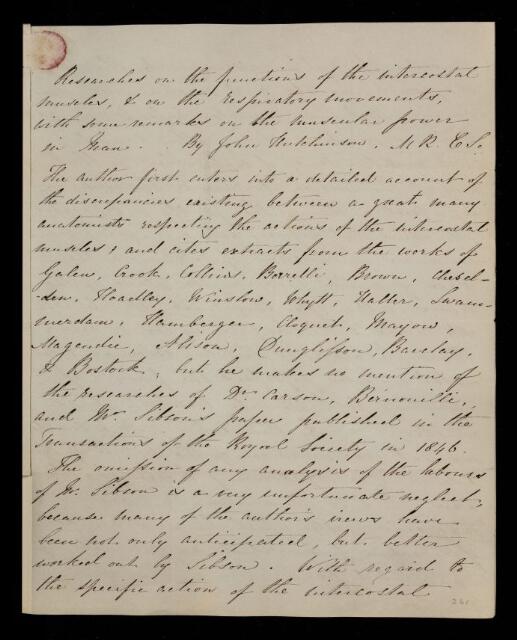 Researches on the functions of the intercostal
muscles, & on the respiratory movements,
with some remarks on the muscular power
in Man. By John Hutchinson, M R. C. S.
The author first enters into a detailed account of
the discrepancies existing between a great many
anatomists respecting the actions of the intercostal
muscles, and cites extracts from the works of
Galen, Crook, Collins, Borrelli, Brown, Chesel-
-den, Hoadley, Winslow, Whytt, Haller, Swam-
merdam, Hamberger, Cloquet, Mayow,
Magendie, Alison, Dunglisson, Barclay,
& Bostock; but he makes no mention of
the researches of Dr. Carson, Bernouilli,
and Mr. Sibson's paper published in the
Transactions of the Royal Society in 1846.
The omission of any analysis of the labours
of Mr. Sibson is a very unfortunate neglect,
because many of the author's views have
been not only anticipated, but better
worked out by Sibson. With regard to
the specific action of the intercostal